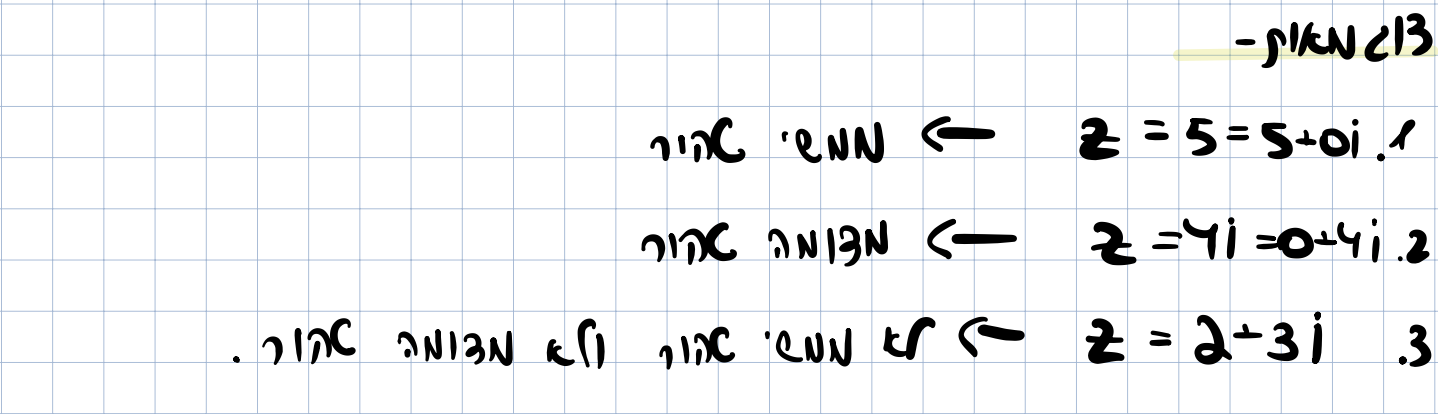 דוגמאות -
1. z = 5 = 5+0i ← ממשי טהור
2. z = 4i = 0+4i ← מדומה טהור
3. z = 2+3i ← לא ממשי טהור ולא מדומה טהור.